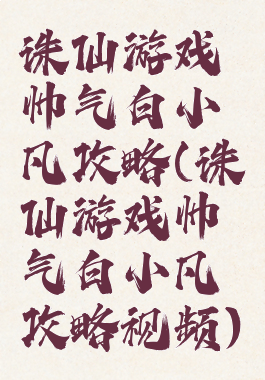 诛仙游戏
帅气白小
凡攻略(诛
仙游戏帅
气白小凡
攻略视频)